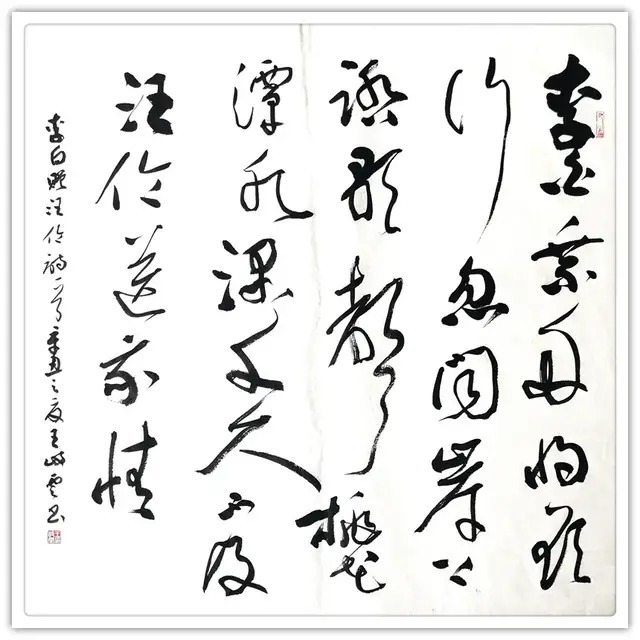 李白乘舟将欲
行忽闻岸上
踏歌声桃花
潭水深千尺不及
汪伦送我情
李白赠汪伦诗一首辛丑之夏王云书